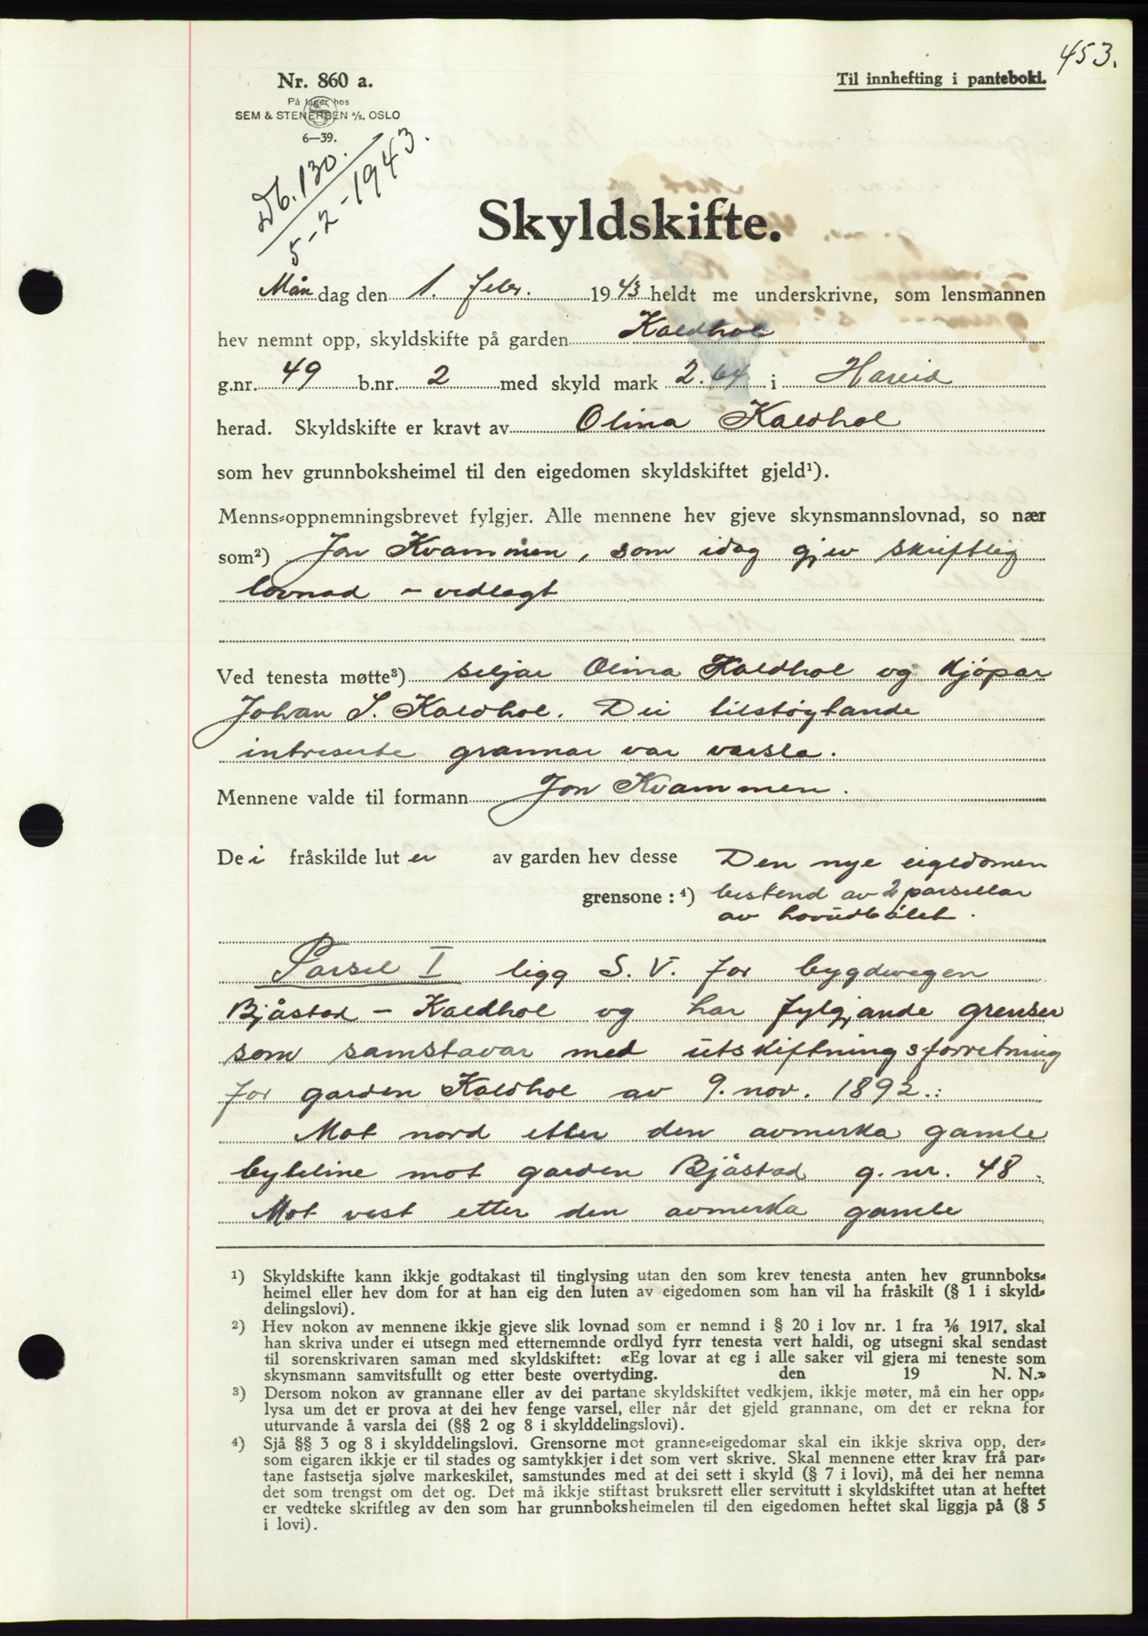 453.
Nr. 860 a.
Til innhefting i panteboki.
På lager hos
SEM & STENERSEN A/S, OSLO
6—39.
Db. 130.
5-2-1943.
Skyldskifte.
Måndag den 1. febr. 1943 heldt me underskrivne, som lensmannen
hev nemnt opp, skyldskifte på garden Kaldhol
g.nr. 49 b.nr. 2 med skyld mark 2.64 i Hareid
herad. Skyldskifte er kravt av Olina Kaldhol
som hev grunnboksheimel til den eigedomen skyldskiftet gjeld¹).
Menns-oppnemningsbrevet fylgjer. Alle mennene hev gjeve skynsmannslovnad, so nær
som²) Jon Kvammen, som idag gjev skriftlig
lovnad – vedlagt
Ved tenesta møtte³) seljar Olina Kaldhol og kjöpar
Johan S. Kaldhol. Dei tilstøytande
intreserte grannar var varsla.
Mennene valde til formann Jon Kvammen.
Dei fråskilde luter av garden hev desse Den nye eigedomen
grensone: ⁴) bestend av 2 parsellar
av hovudbölet.
Parsel I ligg S. V. for bygdevegen
Bjåstad – Kaldhol og har fylgjande grenser
som samstavar med utskiftningsforretning
for garden Kaldhol av 9. nov. 1892.:
Mot nord etter den avmerka gamle
byteline mot garden Bjåstad g. nr. 48.
Mot vest etter den avmerka gamle
¹) Skyldskifte kann ikkje godtakast til tinglysing utan den som krev tenesta anten hev grunnboks-
heimel eller hev dom for at han eig den luten av eigedomen som han vil ha fråskilt (§ 1 i skyld-
delingslovi).
²) Hev nokon av mennene ikkje gjeve slik lovnad som er nemnd i § 20 i lov nr. 1 fra 1/6 1917, skal
han skriva under ei utsegn med etternemnde ordlyd fyrr tenesta vert haldi, og utsegni skal sendast
til sorenskrivaren saman med skyldskiftet: «Eg lovar at eg i alle saker vil gjera mi teneste som
skynsmann samvitsfullt og etter beste overtyding. den 19 N. N.»
³) Dersom nokon av grannane eller av dei partane skyldskiftet vedkjem, ikkje møter, må ein her opp-
lysa um det er prova at dei hev fenge varsel, eller når det gjeld grannane, om det er rekna for
uturvande å varsla dei (§§ 2 og 8 i skylddelingslovi).
⁴) Sjå §§ 3 og 8 i skylddelingslovi. Grensorne mot granne-eigedomar skal ein ikkje skriva opp, der-
som eigaren ikkje er til stades og samtykkjer i det som vert skrive. Skal mennene etter krav frå par-
tane fastsetja sjølve markeskilet, samstundes med at dei sett i skyld (§ 7 i lovi), må dei her nemna
det som trengst om det og. Det må ikkje stiftast bruksrett eller servitutt i skyldskiftet utan at heftet
er vedteke skriftleg av den som har grunnboksheimelen til den eigedomen heftet skal liggja på (§ 5
i lovi).